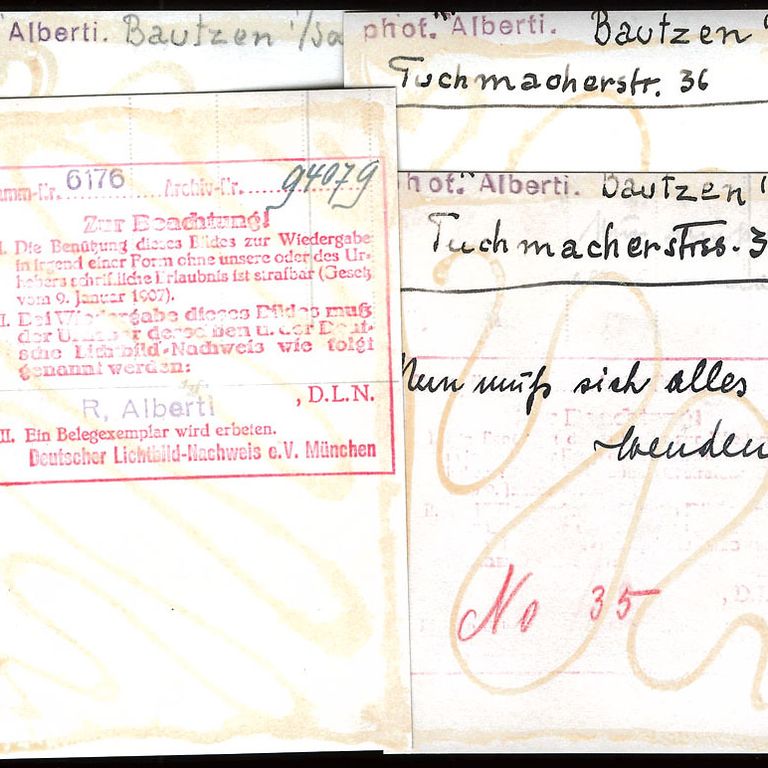 Alberti. Bautzen i/Sa
phot. Alberti. Bautzen
Tuchmacherstr. 36
6176 Archiv-Nr. 94079
Zur Beachtung!
I. Die Benützung dieses Bildes zur Wiedergabe
in irgend einer Form ohne unsere oder des Ur-
hebers schriftliche Erlaubnis ist strafbar (Gesetz
vom 9. Januar 1907).
II. Bei Wiedergabe dieses Bildes muß
der Urheber desselben u. der Deut-
sche Lichtbild-Nachweis wie folgt
genannt werden:
R. Alberti , D.L.N.
III. Ein Belegexemplar wird erbeten.
Deutscher Lichtbild-Nachweis e.V. München
phot. Alberti. Bautzen
Tuchmacherstrss. 3
Nun muß sich alles
wenden
No 35